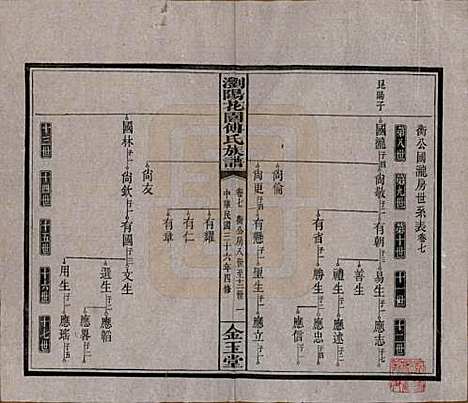 衡公國瀧房世系表卷七
第八世 第九世 第十世 十一世 十二世
昆陽子
國瀧
尙敏
有朝
易生
應志
善生
禮生
應述
有省
勝生
應忠
應信
尙倫
尙更
有懸
聖生
應立
有耀
有仁
有章
瀏陽北園傅氏族譜
卷七
衡公房八世至十二世
一
中華民國三十六年四修
金玉堂
尙友
國林
尙欽
有國
文生
應韜
選生
應畧
用生
應瑤
十三世 十四世 十五世 十六世 十七世